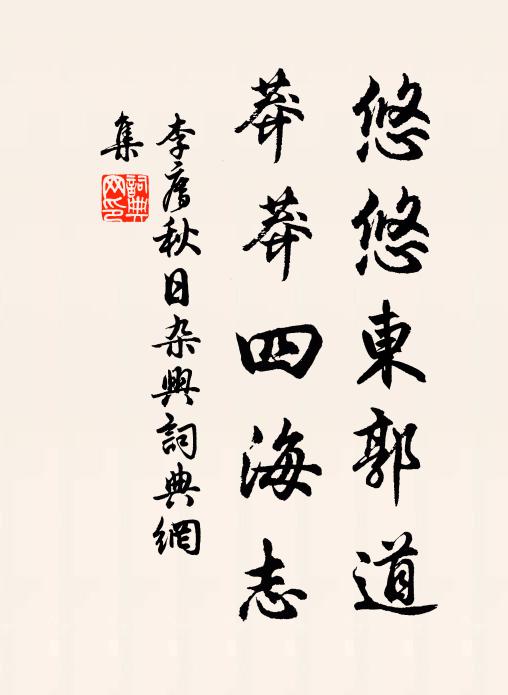 悠悠東郭道
莽莽四海志
李廌秋日杂興詞典網
集
詞典
网印